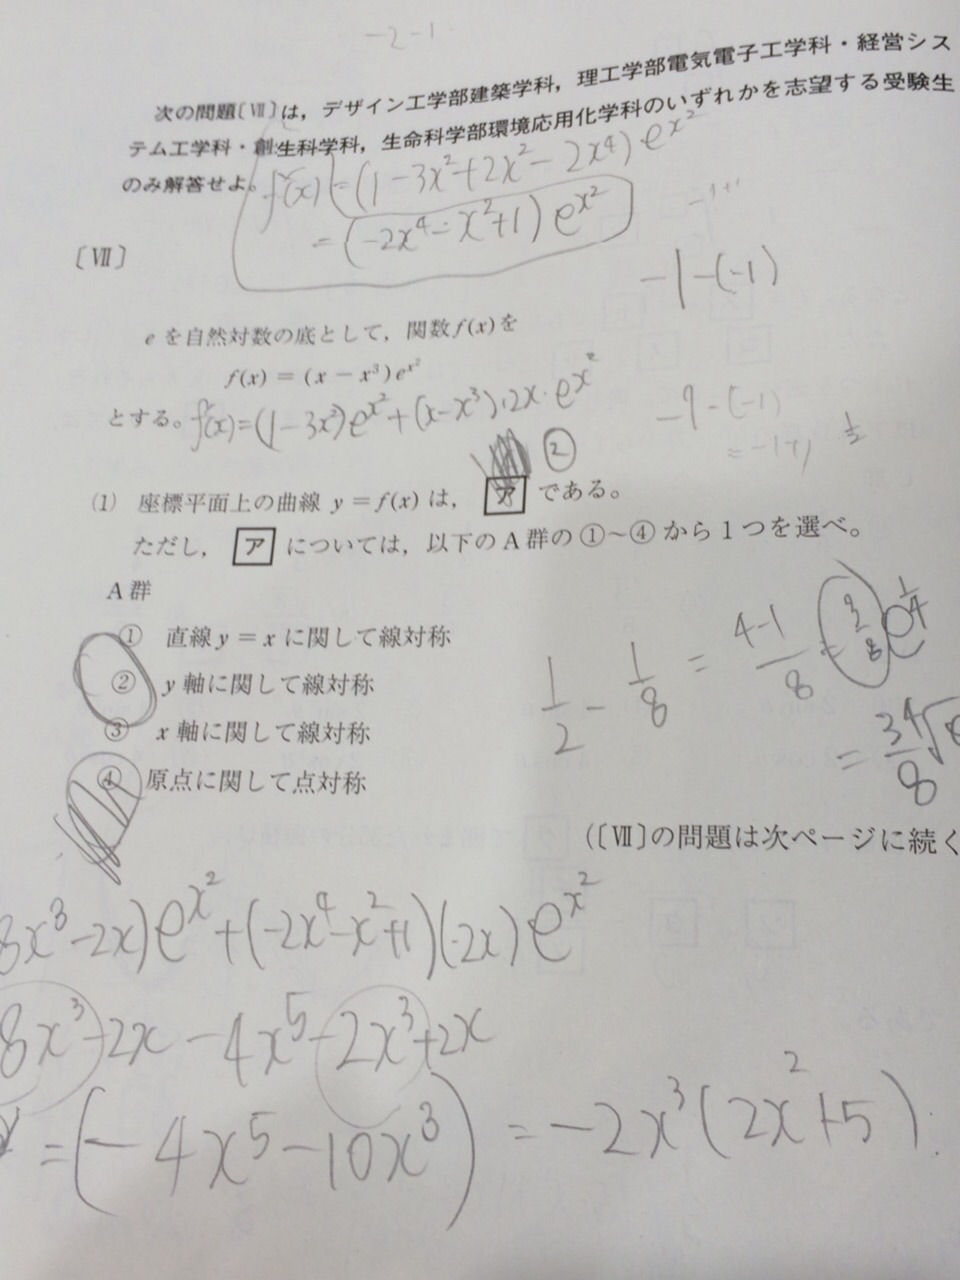 -2-1
次の問題〔Ⅶ〕は，デザイン工学部建築学科，理工学部電気電子工学科・経営シス
テム工学科・創生科学科，生命科学部環境応用化学科のいずれかを志望する受験生
のみ解答せよ。
f'(x) = (1-3x²+2x²-2x⁴) e^{x²}
= (-2x⁴-x²+1) e^{x²}
-1+1
〔Ⅶ〕
-1-(-1)
e を自然対数の底として，関数 f(x) を
f(x) = (x − x³) e^{x²}
とする。
f'(x) = (1-3x²) e^{x²} + (x-x³)·2x·e^{x²}
-1-(-1)
= -1+1
1/2
②
(1) 座標平面上の曲線 y = f(x) は， ア である。
ただし， ア については，以下のA群の①～④から1つを選べ。
A群
① 直線 y = x に関して線対称
② y 軸に関して線対称
③ x 軸に関して線対称
④ 原点に関して点対称
1/2 - 1/8 = 4-1/8 = 3/8 e^{1/4}
= 3⁴√e/8
(〔Ⅶ〕の問題は次ページに続く
8x³-2x) e^{x²} + (-2x⁴-x²+1)(2x) e^{x²}
8x³-2x-4x⁵-2x³+2x
= (-4x⁵-10x³) = -2x³(2x²+5)